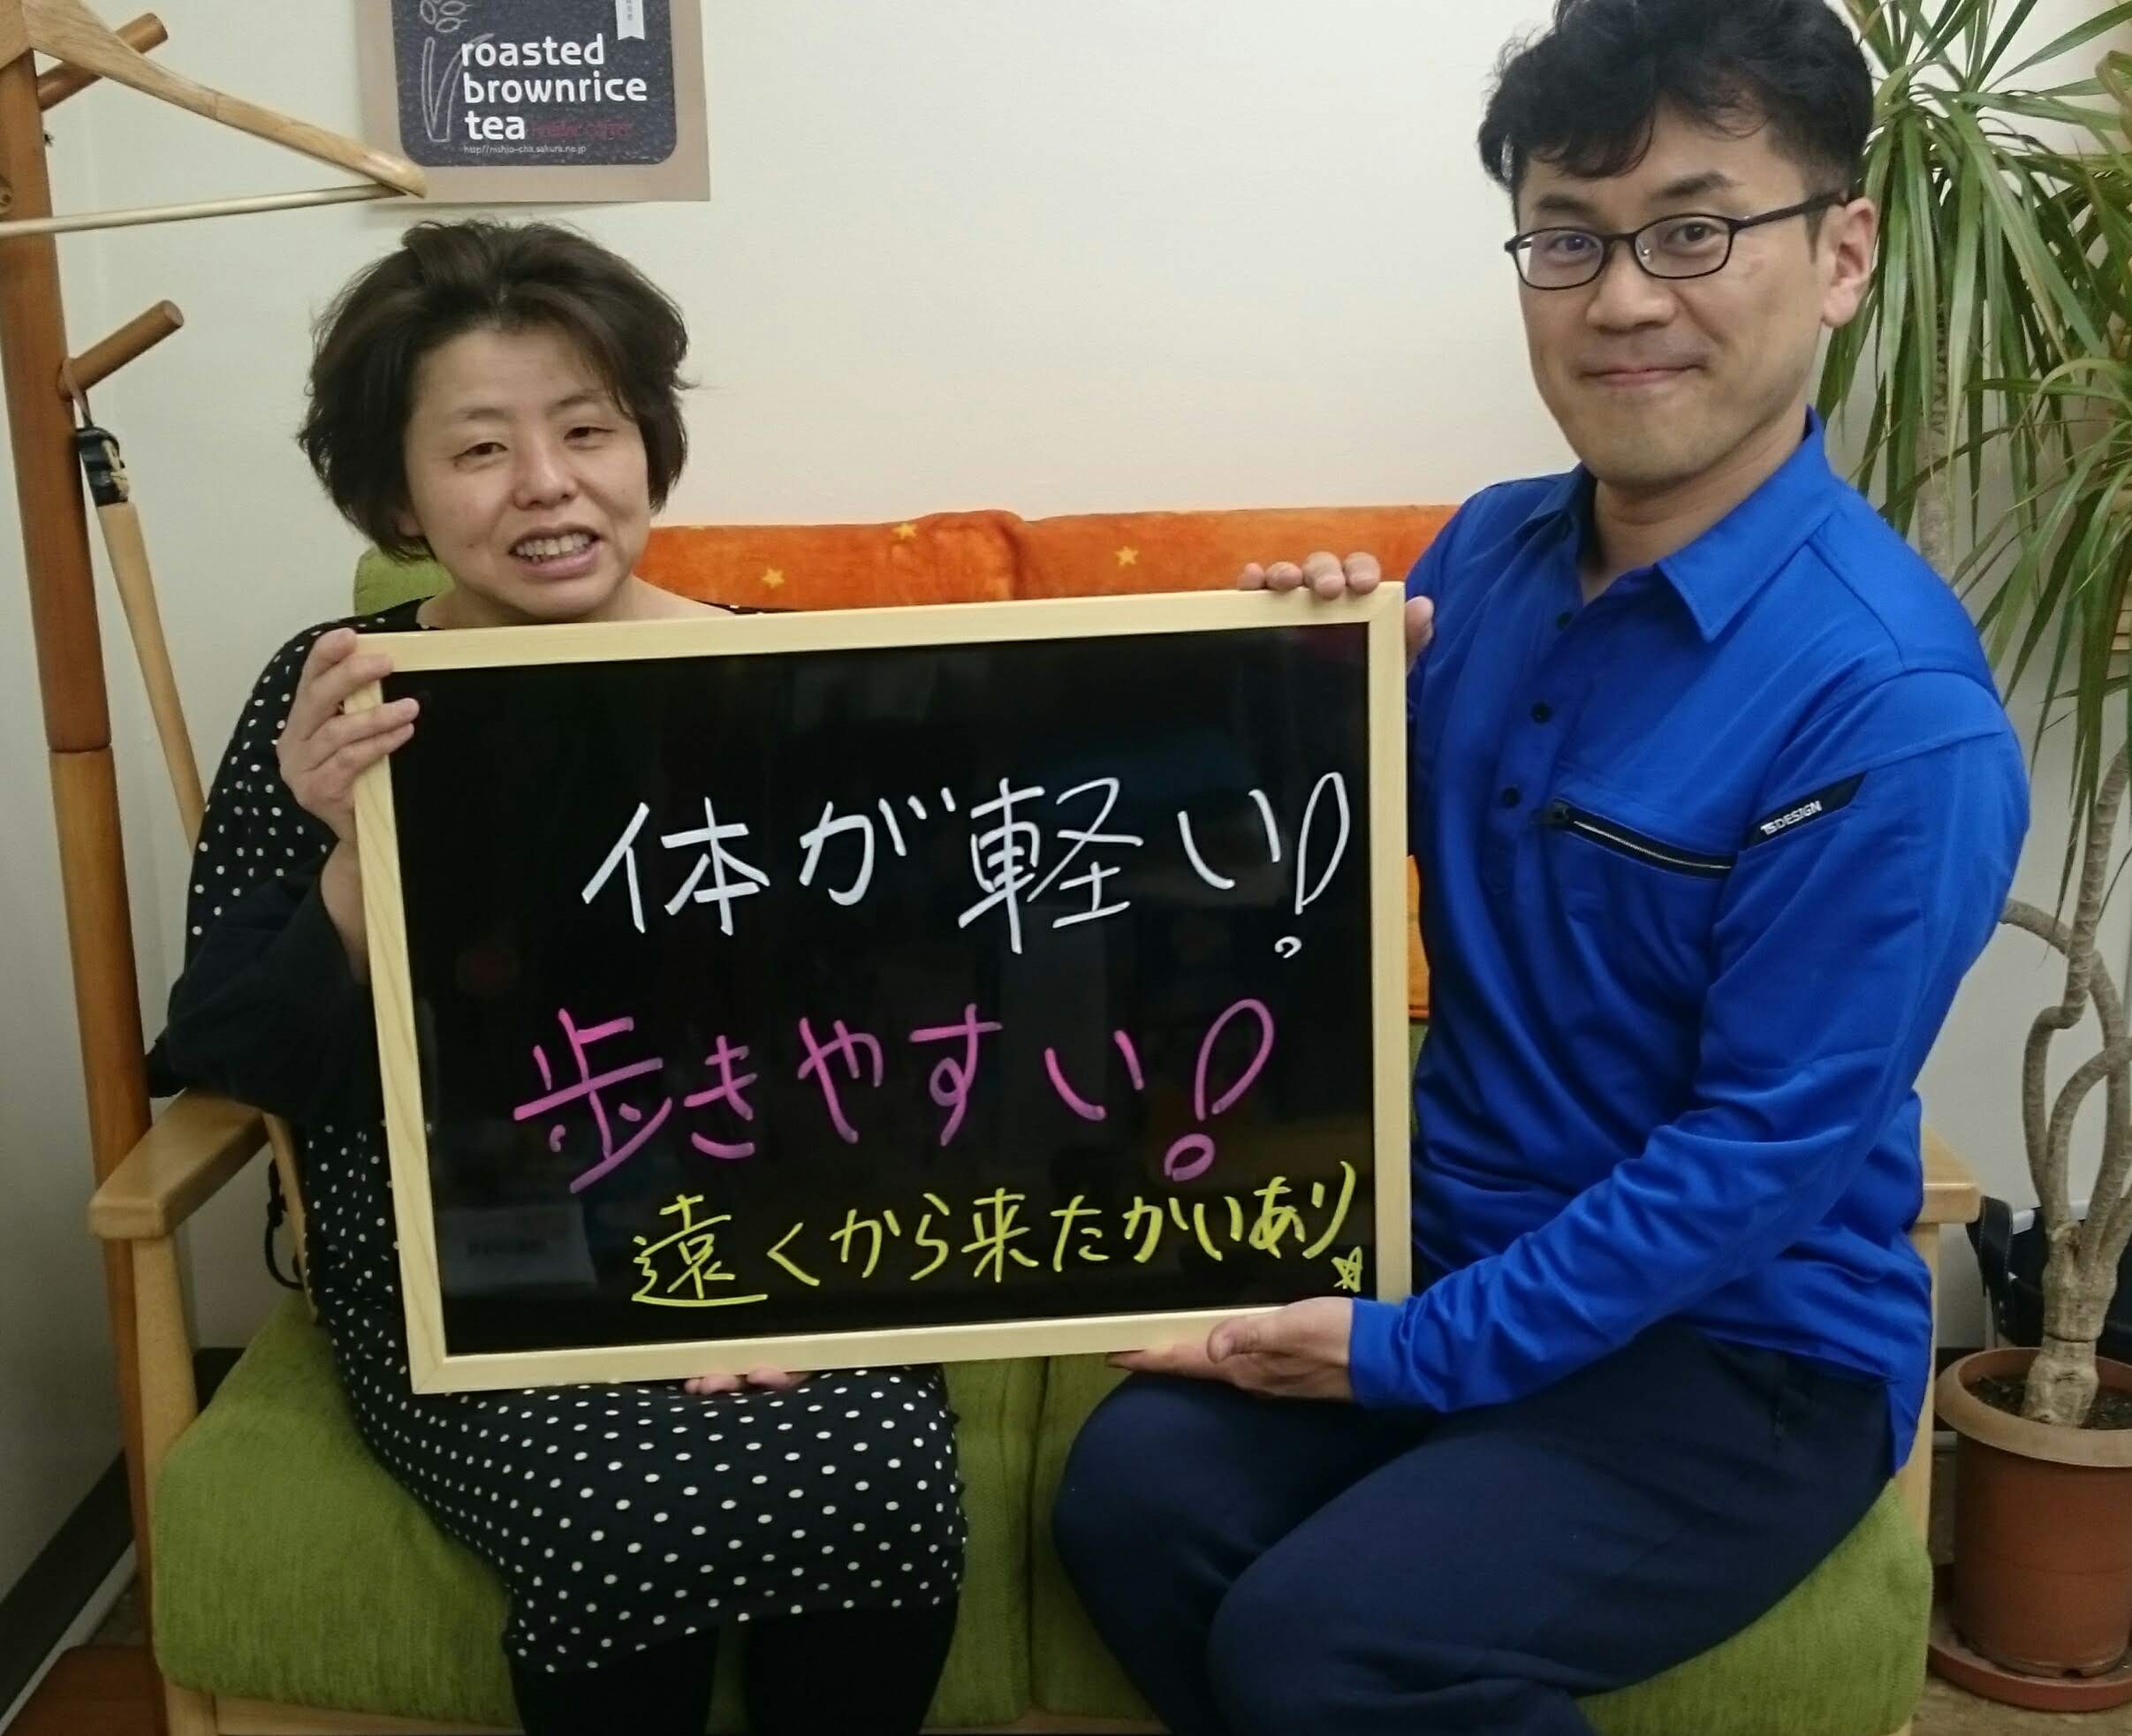 roasted
brownrice
tea
http://nishio-cha.sakura.ne.jp
体が軽い!
歩きやすい!
遠くから来たかいあり☆
TSDESIGN